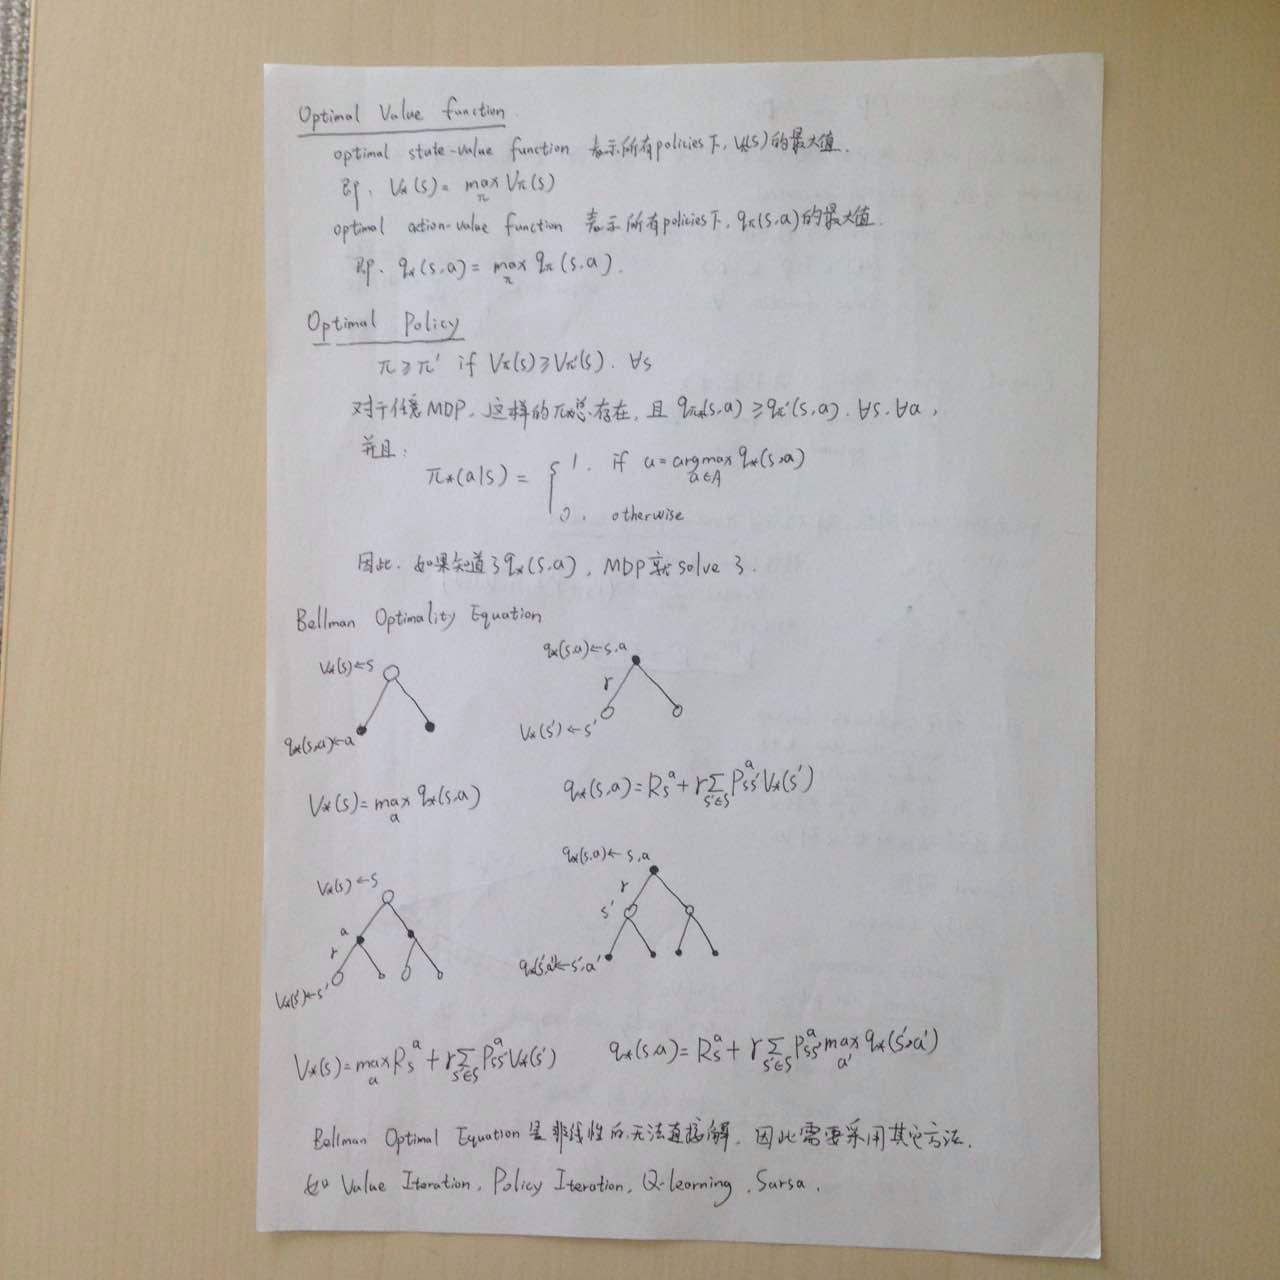 Optimal Value function
optimal state-value function 表示所有policies下, Vπ(s)的最大值.
即. V*(s) = max_π Vπ(s)
optimal action-value function 表示所有policies下, qπ(s,a)的最大值.
即. q*(s,a) = max_π qπ(s,a).
Optimal Policy
π ≥ π' if Vπ(s) ≥ Vπ'(s). ∀s
对于任意MDP. 这样的π*总存在. 且 qπ*(s,a) ≥ qπ'(s,a). ∀s. ∀a,
并且:
π*(a|s) = { 1. if a = argmax_{a∈A} q*(s,a)
0. otherwise
因此. 如果知道了q*(s,a), MDP就solve了.
Bellman Optimality Equation
V*(s) ← s
q*(s,a) ← s,a
r
q*(s,a) ← a
V*(s') ← s'
V*(s) = max_a q*(s,a)
q*(s,a) = R_s^a + γ Σ_{s'∈S} P_{ss'}^a V*(s')
V*(s) ← s
q*(s,a) ← s,a
a
r
r
s'
V*(s') ← s'
q*(s',a') ← s',a'
V*(s) = max_a R_s^a + γ Σ_{s'∈S} P_{ss'}^a V*(s')
q*(s,a) = R_s^a + γ Σ_{s'∈S} P_{ss'}^a max_{a'} q*(s',a')
Bellman Optimal Equation是非线性的,无法直接解. 因此需要采用其它方法.
如 Value Iteration, Policy Iteration, Q-learning, Sarsa.